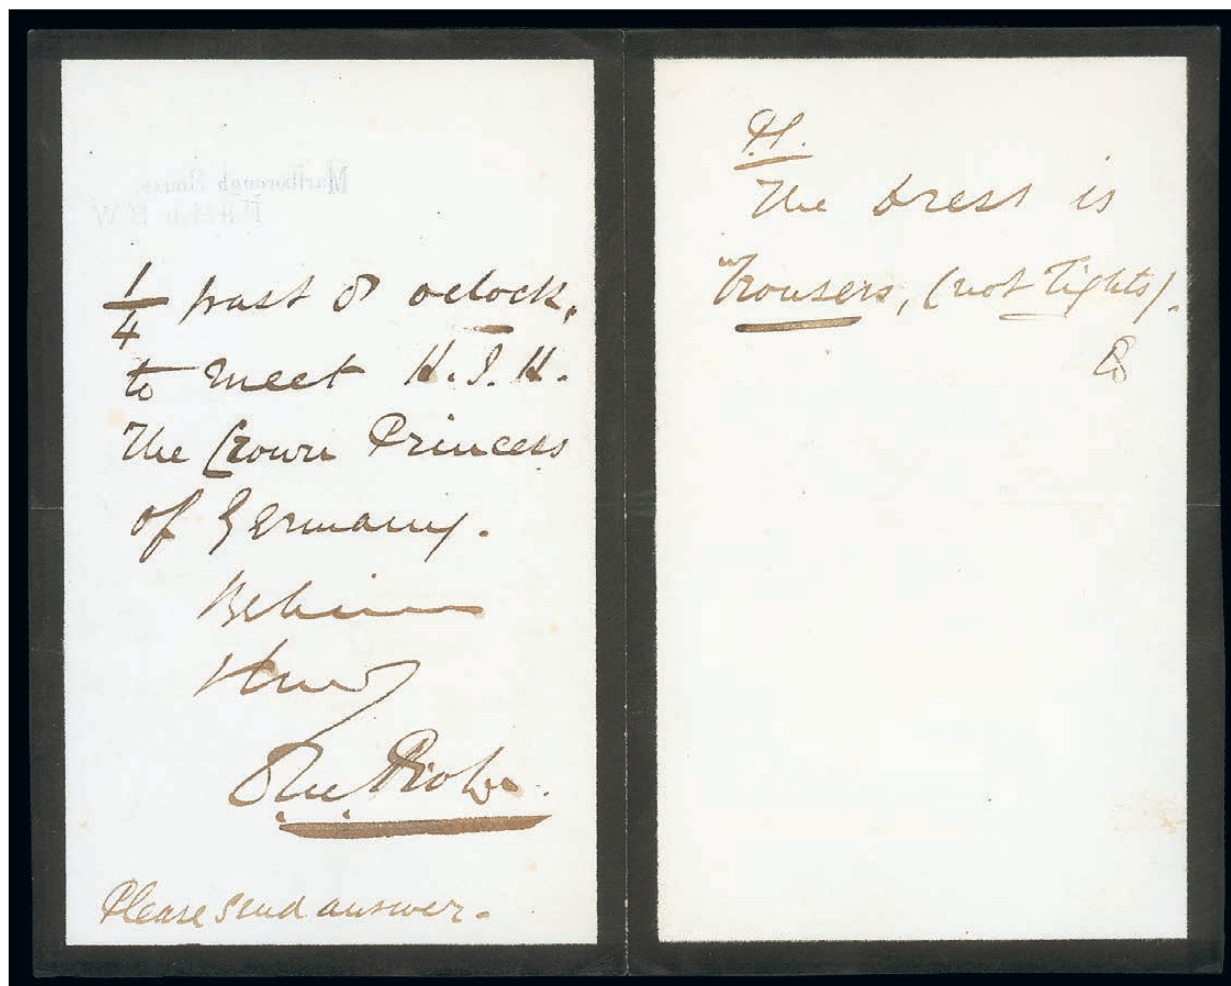 Marlborough House,
Pall Mall. S.W.
1/4 past 8 oclock,
to meet H.I.H.
The Crown Princess
of Germany.
Please send answer.
The dress is
"Trousers, (not Tights).